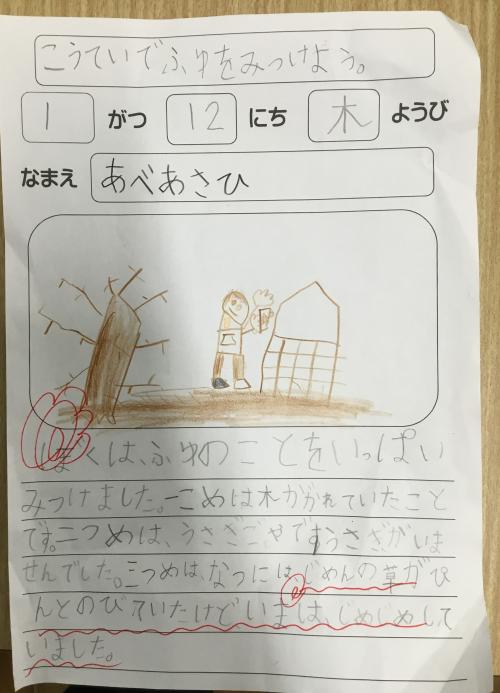 こうていでふゆをみつけよう。
1 がつ 12 にち 木 ようび
なまえ あべあさひ
ぼくは、ふゆのことをいっぱい
みつけました。一こめは木がかれていたこと
です。二つめは、うさぎごやですうさぎがいま
せんでした。三つめは、なつにはじめんの草がぴ
んとのびていたけどいまは、じめじめして
いました。